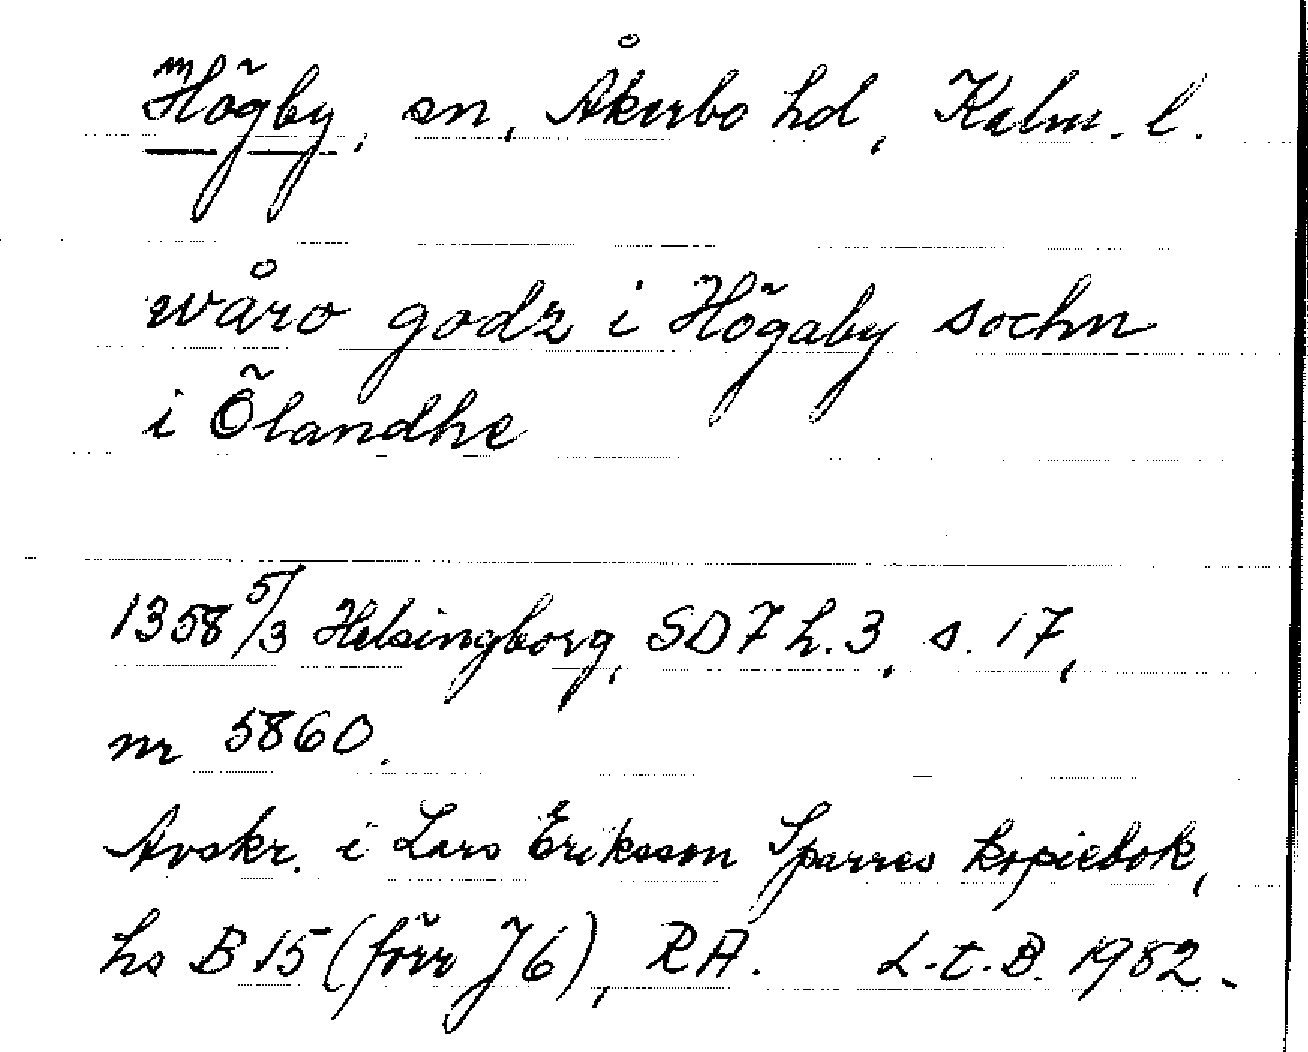 Högby, sn, Åkerbo hd, Kalm. l.
wåro godz i Högaby sochn
i Ölandhe
1358 5/3 Helsingborg, SD 7 h. 3, s. 17,
nr 5860.
Avskr. i Lars Eriksson Sparres kopiebok,
hs B 15 (förr J 6), RA. L.t.B. 1982.